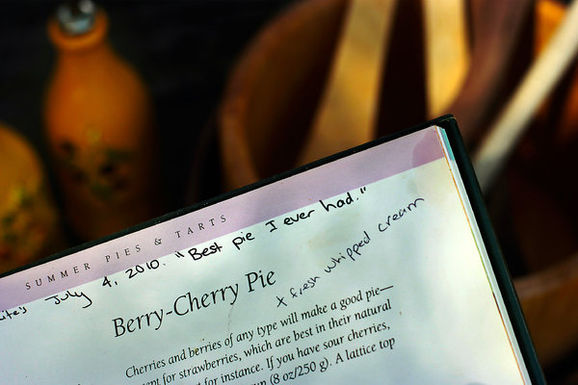 SUMMER PIES & TARTS
July 4, 2010. "Best pie I ever had."
x fresh whipped cream
Berry-Cherry Pie
Cherries and berries of any type will make a good pie—
for strawberries, which are best in their natural
for instance. If you have sour cherries,
(8 oz/250 g). A lattice top